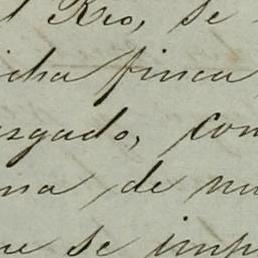 l Rio, se
icha finca
sgado, con
na de nu
ue se imp